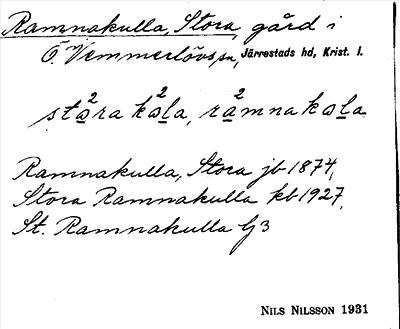 Ramnakulla, Stora gård i
Ö. Vemmerlövs sn, Järrestads hd, Krist. l.
Ramnakulla, Stora jb 1874,
Stora Ramnakulla kb 1927,
St. Ramnakulla
NILS NILSSON 1931